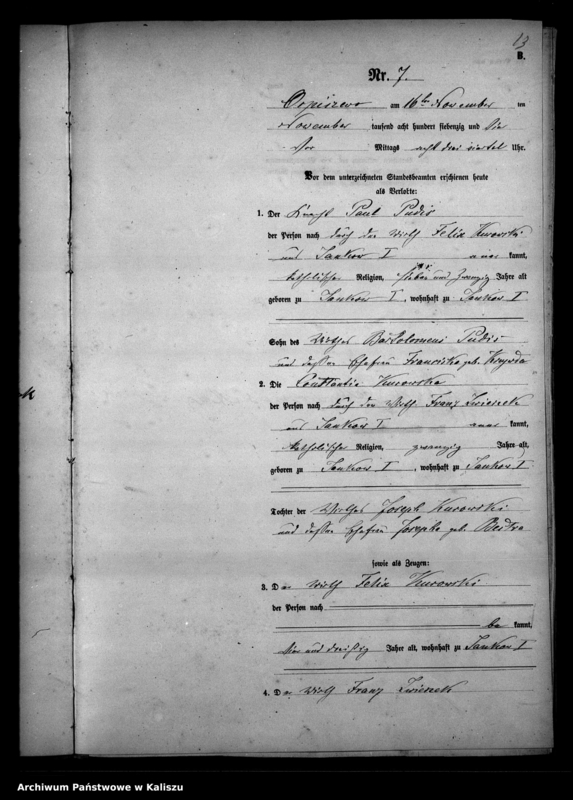 13
B.
Nr. 7.
am 16ten November ten
November tausend acht hundert siebenzig und
Vor Mittags acht drei viertel Uhr.
Vor dem unterzeichneten Standesbeamten erschienen heute
als Verlobte:
1. Der Knecht Paul Pudis
der Person nach durch den Wirth Felix Kurowski
aus Jankow I aner kannt,
katholischer Religion, sieben und zwanzig Jahre alt
geboren zu Jankow I, wohnhaft zu Jankow I
Sohn des Wirthes Bartolomeus Pudis
und dessen Ehefrau Franciska geb.
2. Die Constantia Kurowska
der Person nach durch den Wirth Franz
aus Jankow I aner kannt,
katholischer Religion, zwanzig Jahre alt,
geboren zu Jankow I, wohnhaft zu Jankow I
Tochter der Wirthes Joseph Kurowski
und dessen Ehefrau Josepha geb.
sowie als Zeugen:
3. Der Wirth Felix Kurowski
der Person nach
be kannt,
vier und dreißig Jahre alt, wohnhaft zu Jankow I
4. Der Wirth Franz
Archiwum Państwowe w Kaliszu